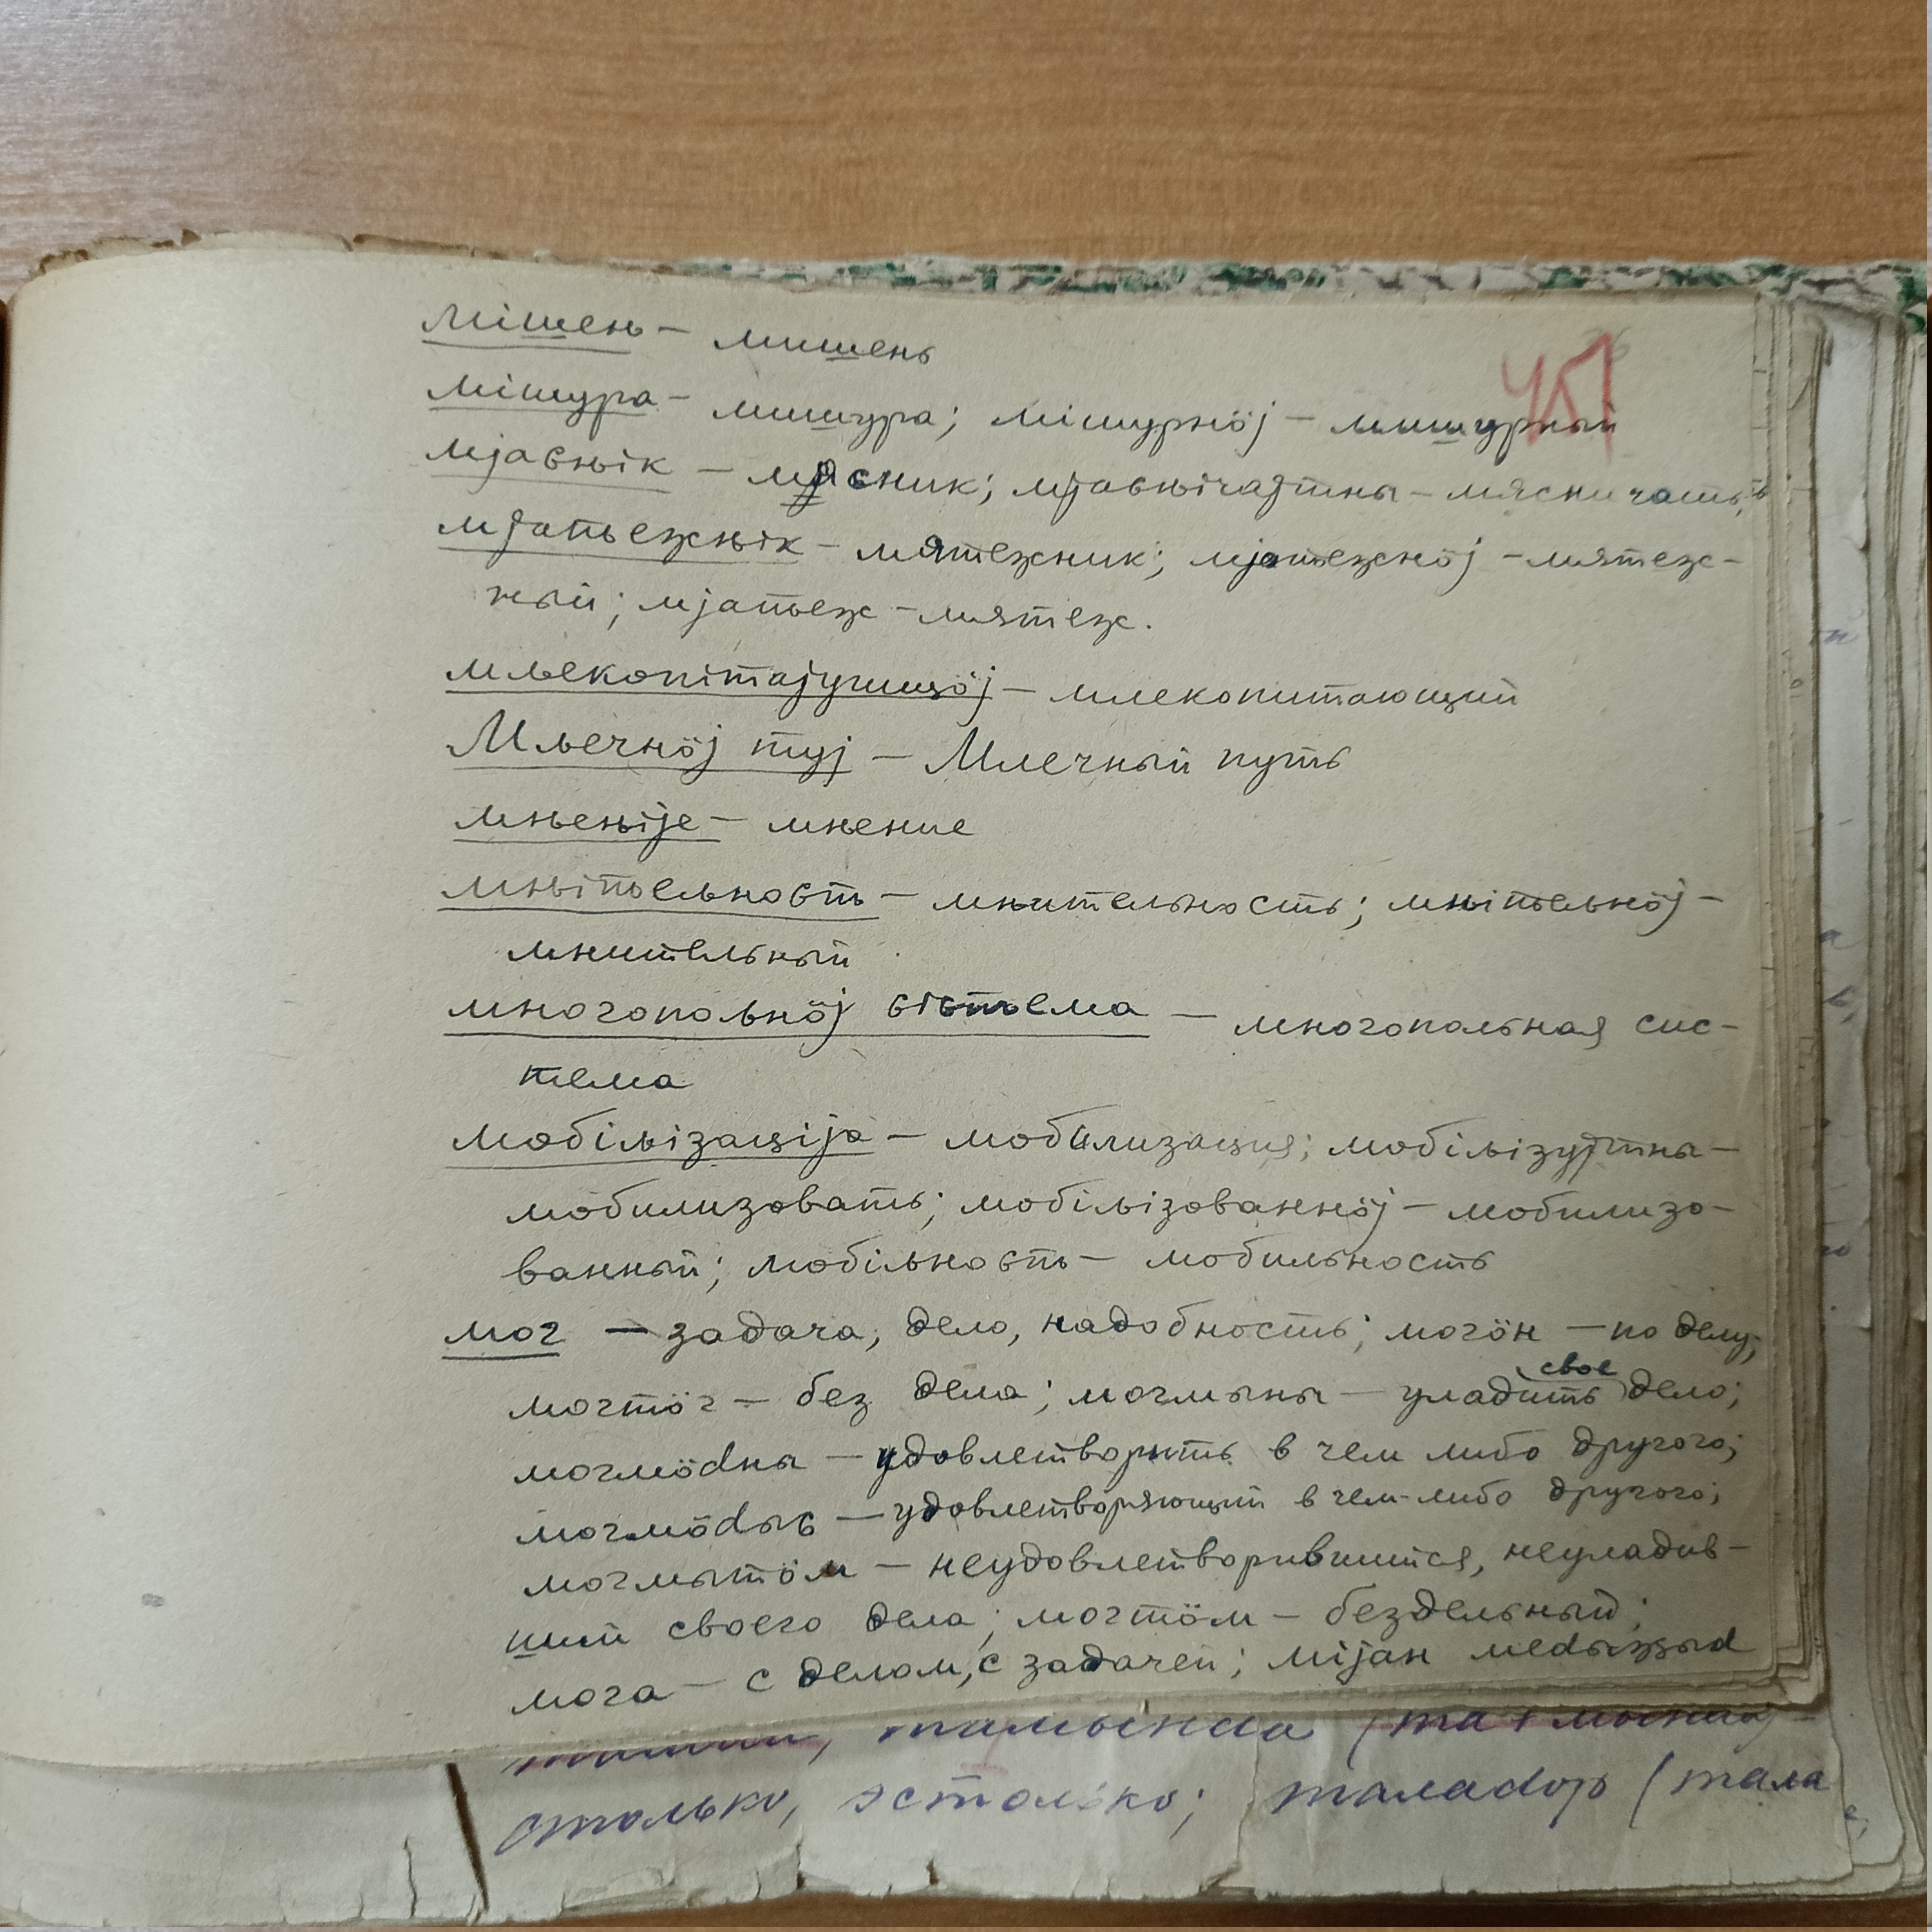 451
мішеԋ – мишень
мішура – мишура; мішурнӧj – мишурный
мjаԍԋік – мясник; мjаԍԋічаjтны – мясничать;
мjаԏежԋік – мятежник; мjаԏежнӧj – мятеж-
ный; мjаԏеж – мятеж.
мԉекопітаjушщӧj – млекопитающий
Мԉечнӧj туj – Млечный путь
мԋеԋіjе – мнение
мԋіԏеԉноԍԏ – мнительность; мԋіԏеԉнӧj –
мнительный
многопоԉнӧj ԍіԍԏема – многопольная сис-
тема
мобіԉізаціjа – мобилизация; мобіԉізуjтны –
мобилизовать; мобіԉізованнӧj – мобилизо-
ванный; мобіԉноԍԏ – мобильность
мог – задача, дело, надобность; могӧн – по делу;
могтӧг – без дела; могмыны – уладить свое дело;
могмӧdны – удовлетворить в чем либо другого;
могмӧdыԍ – удовлетворяющий в чем-либо другого;
могмытӧм – неудовлетворившийся, неуладив-
ший своего дела; могтӧм – бездельный;
мога – с делом, с задачей; міjан меdыԇԇыd
тамында
столько, эстолько; талаdор (тала